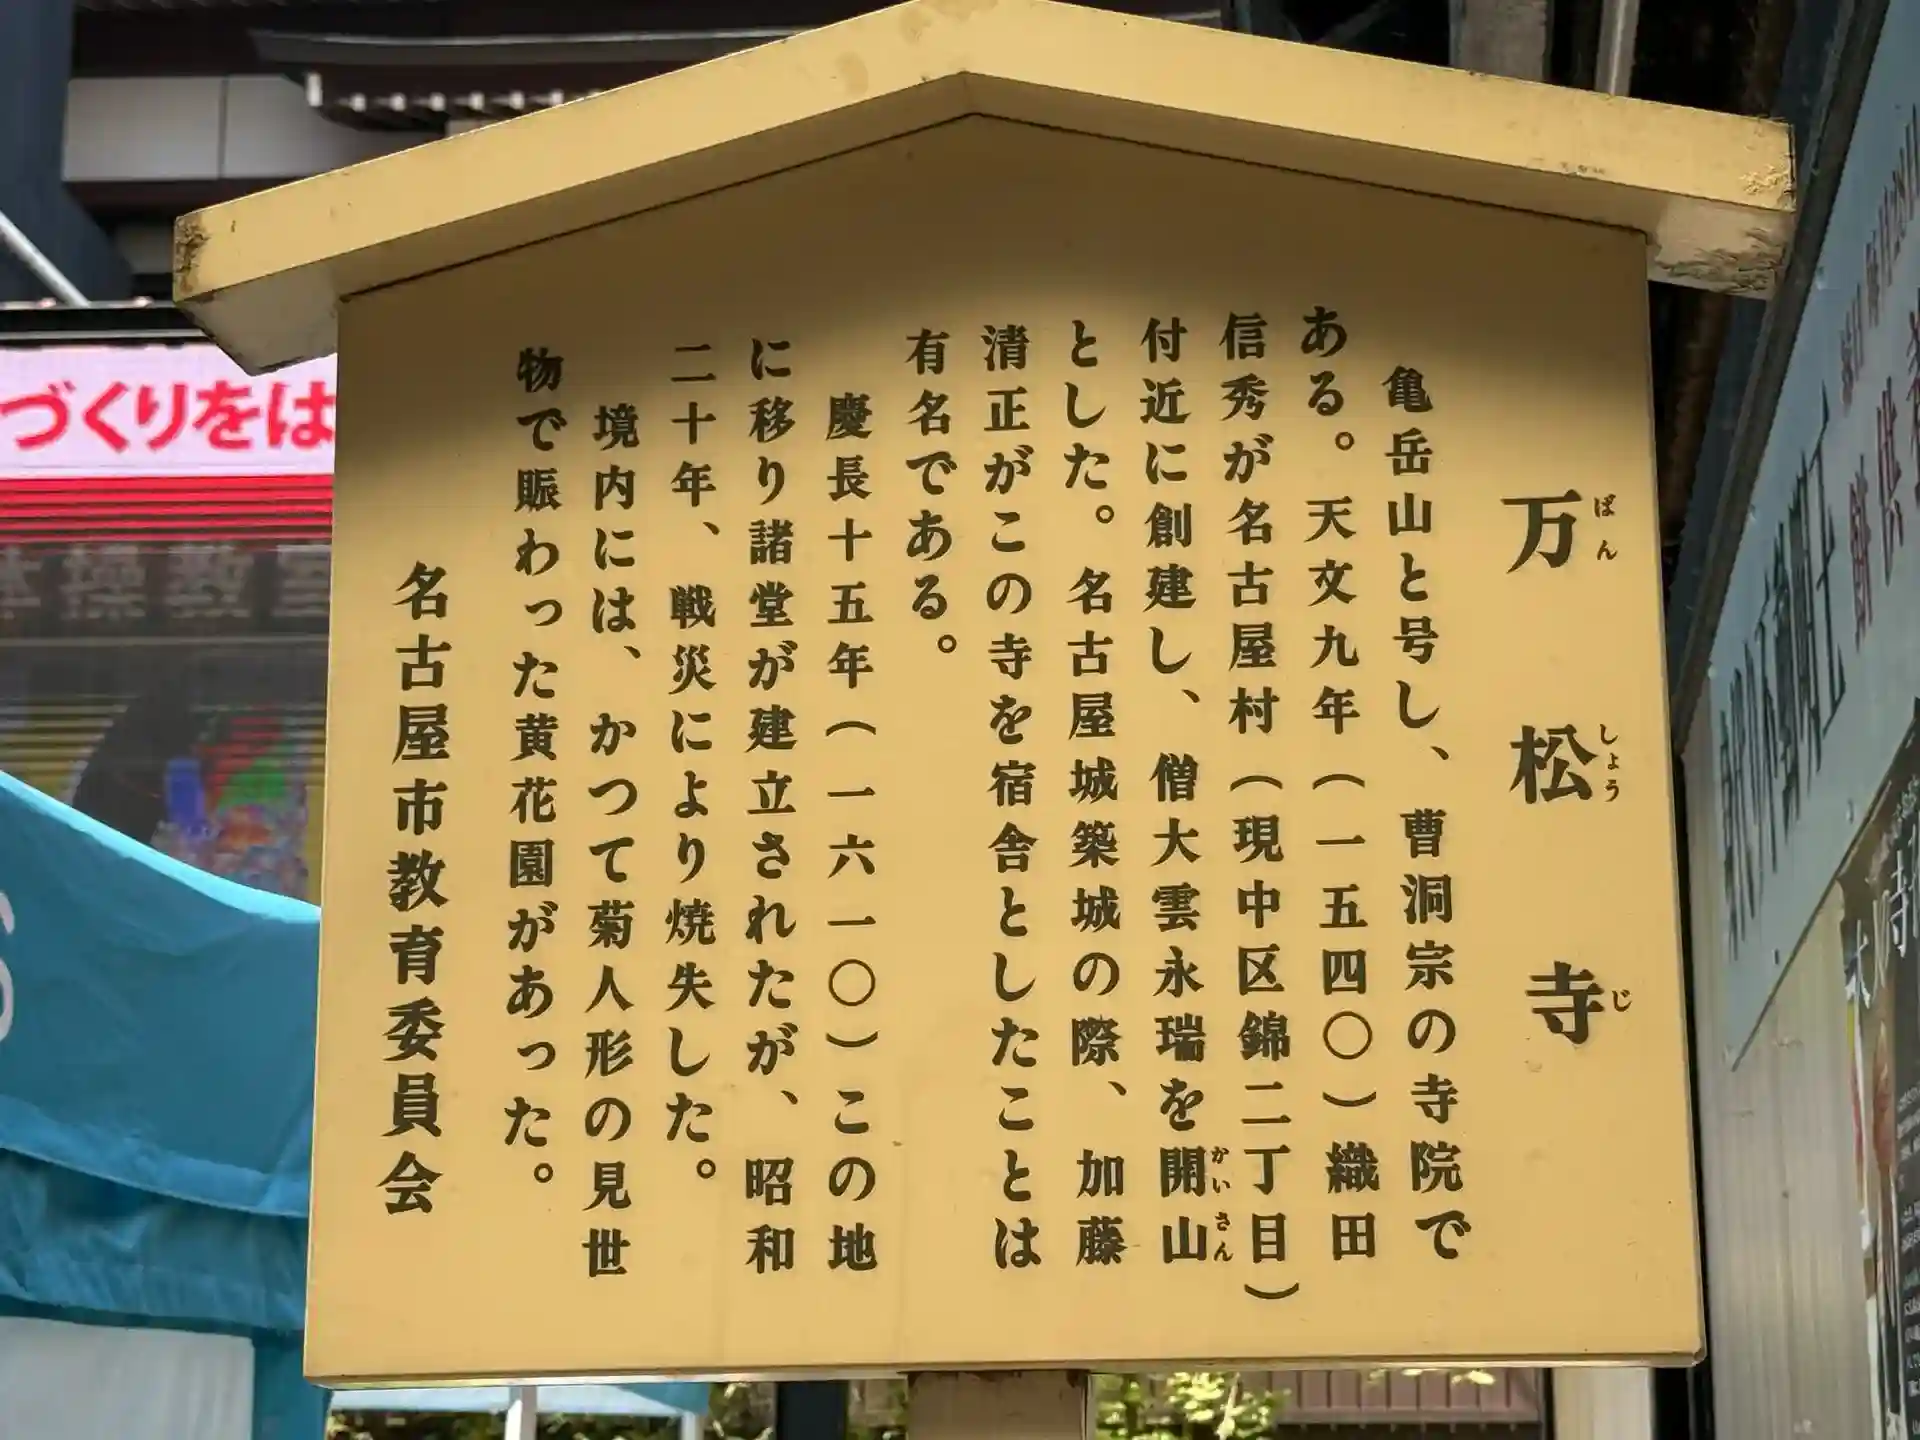 万松寺
ばんしょうじ
亀岳山と号し、曹洞宗の寺院で
ある。天文九年(一五四〇)織田
信秀が名古屋村(現中区錦二丁目)
付近に創建し、僧大雲永瑞を開山
かいさん
とした。名古屋城築城の際、加藤
清正がこの寺を宿舎としたことは
有名である。
慶長十五年(一六一〇)この地
に移り諸堂が建立されたが、昭和
二十年、戦災により焼失した。
境内には、かつて菊人形の見世
物で賑わった黄花園があった。
名古屋市教育委員会
づくりをは